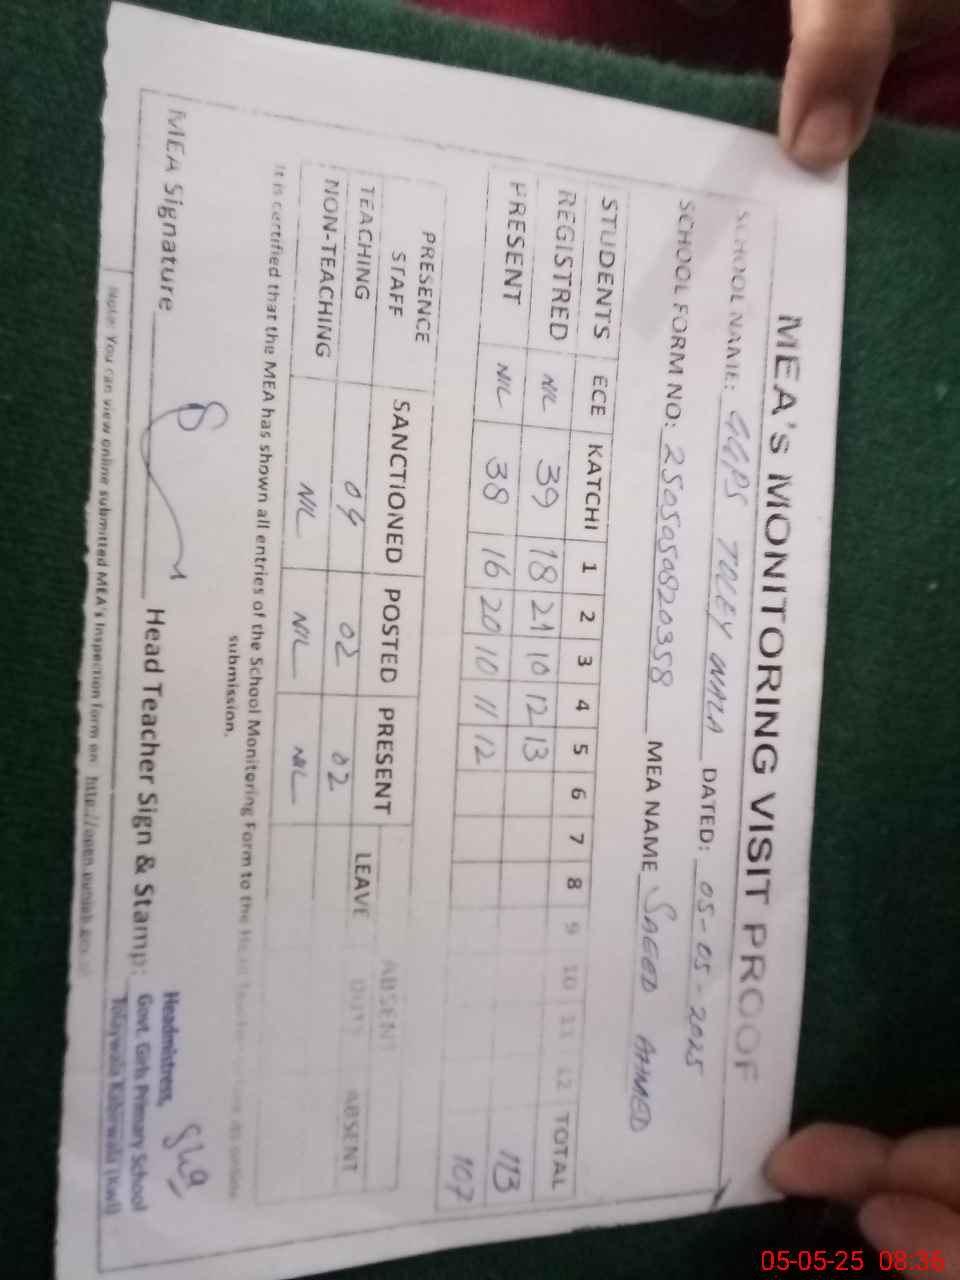 MEA's MONITORING VISIT PROOF
SCHOOL NAME: GGPS TOLEY WALA DATED: 05-05-2025
SCHOOL FORM NO: 2505050820358 MEA NAME SAEED AHMED
STUDENTS ECE KATCHI 1 2 3 4 5 6 7 8 9 10 11 12 TOTAL
REGISTRED NIL 39 18 21 10 12 13 113
PRESENT NIL 38 16 20 10 11 12 107
PRESENCE STAFF SANCTIONED POSTED PRESENT LEAVE ABSENT DUTY ABSENT
TEACHING 04 02 02
NON-TEACHING NIL NIL NIL
It is certified that the MEA has shown all entries of the School Monitoring Form to the Head Teacher before its online
submission.
MEA Signature Head Teacher Sign & Stamp:
Headmistress,
Govt. Girls Primary School
Tolaywala Kabirwala (Kwl)
Note: You can view online submitted MEA's Inspection form on http://open.punjab.gov.pk
05-05-25 08:36